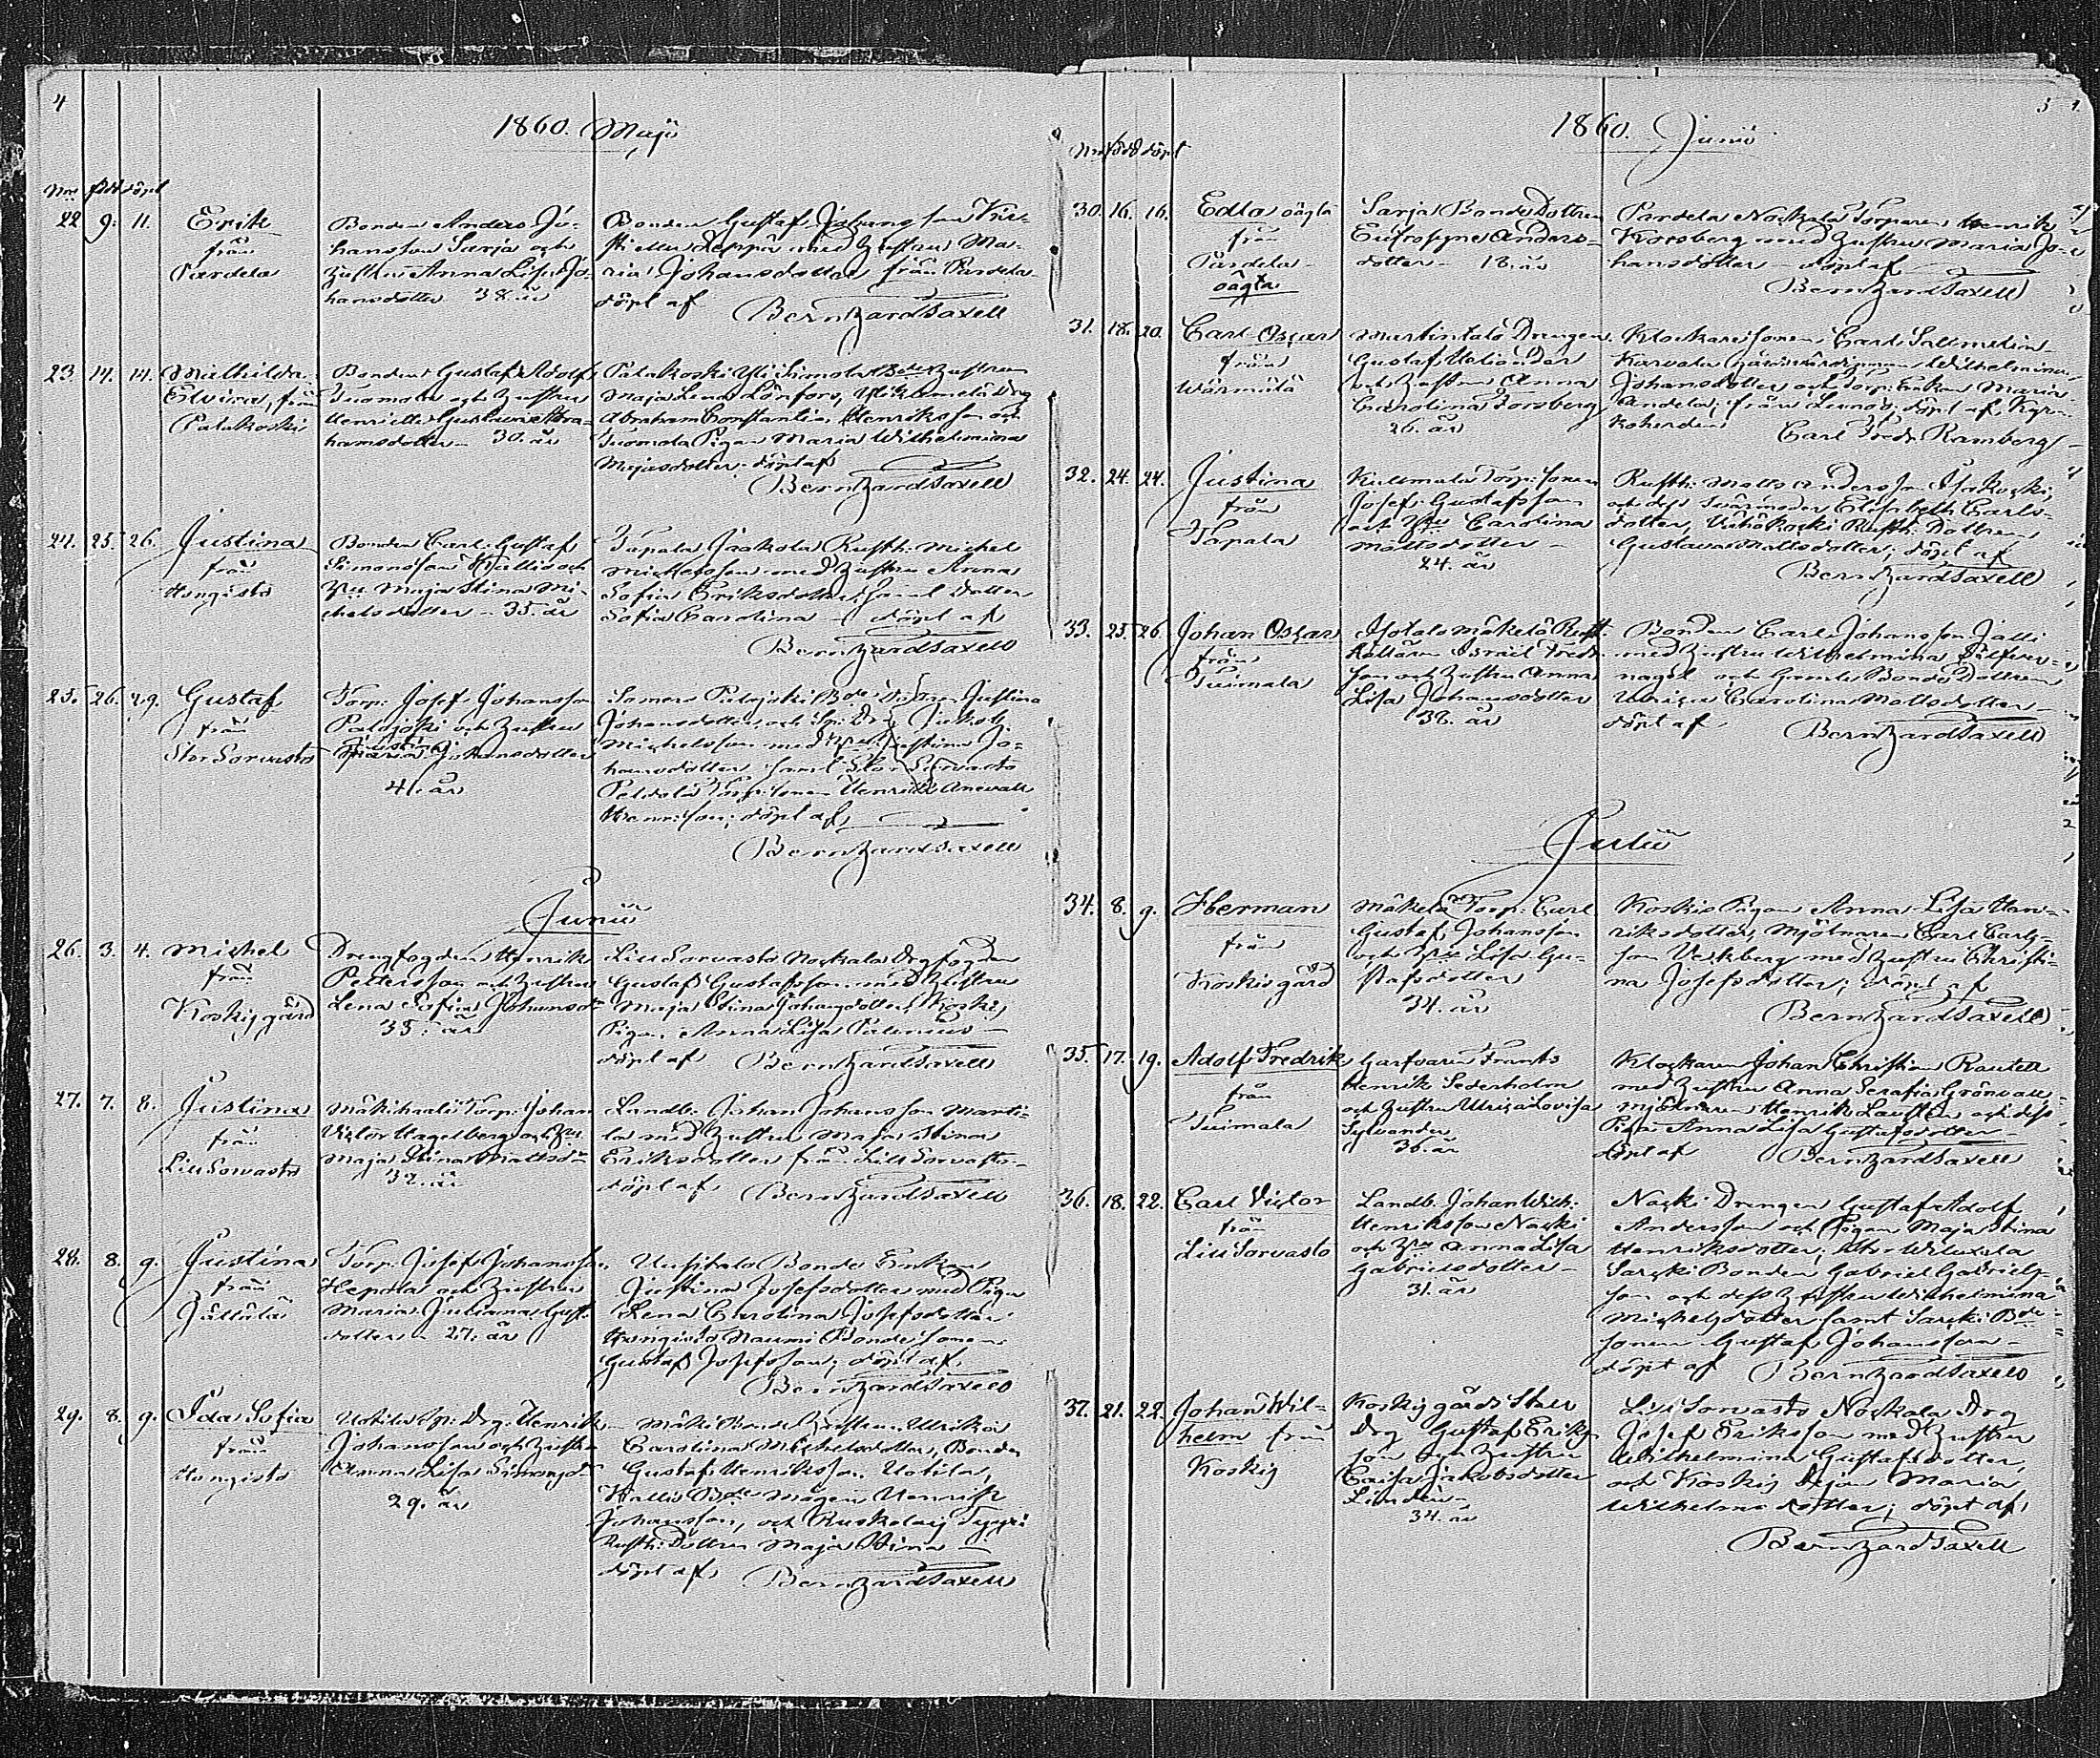 4
1860. Maji
Nro född döpt
22 9. 11. Erik
från
Pardela
Bonden Anders Jo-
hansson Sarja och
hustru Anna Lisa Jo-
hansdotter 38. år
Bonden Gustaf Johansson
med hustru Ma-
ria Johansdotter från Pardela
döpt af
Bernhard Saxell
23. 14. 14. Mathilda
Elvira, från
Palakoski
Bonden Gustaf Adolf
Tuomola och hustru
Henrietta Gustava Abra-
hamsdotter 30. år
Palakoski Yli Simola hustrun
Maja Lena Lönfors,
Abraham Constantin Henriksson och
Tuomola Pigan Maria Wilhelmina
Majasdotter döpt af
Bernhard Saxell
24. 25. 26. Justina
från
Hongisto
Bonden Carl Gustaf
Simonsson Kallio och
Hu Maja Stina Mi-
chelsdotter 35. år
Tapala Jaakola Rusth. Michel
Michelsson med hustru Anna
Sofia Eriksdotter, samt dotter
Sofia Carolina döpt af
Bernhard Saxell
25. 26. 29. Gustaf
från
Stor Sorvasto
Torp. Josef Johansson
Palojoki och hustru
Justina
Maria Johansdotter
41. år
Somero Palojoki Justina
Johansdotter, och Jakob
Michelsson med Justina Jo-
hansdotter samt Stor Sorvasto
Peldola Torp. sonen Henrik
Henriksson; döpt af
Bernhard Saxell
Junii
26. 3. 4. Michel
från
Koskis gård
Drengfogden Henrik
Pettersson och hustru
Lena Sofia Johansdr
35. år
Liu Sorvasto Noskala Drgfogden
Gustaf Gustafsson med hustru
Maja Stina Johansdotter, Koskis
Pigan Anna Lisa Palenius
döpt af Bernhard Saxell
27. 7. 8. Justina
från
Liu Sorvasto
Mäkihaali Torp. Johan
Victor Hagelberg och hu
Maja Stina Mattsdr
32. år
Landb. Johan Johansson Marti-
la med hustru Maja Stina
Eriksdotter från Liu Sorvasto
döpt af Bernhard Saxell
28. 8. 9. Justina
från
Jällälä
Torp. Josef Johansson
Hepola och hustru
Maria Juliana Gust.
dotter 27. år
Uusitalo Bonde Enkan
Justina Josefsdotter med Pigan
Lena Carolina Josefsdotter
Hongisto Naumi Bonde sonen
Gustaf Josefsson; döpt af
Bernhard Saxell
29. 8. 9. Ida Sofia
från
Hongisto
Uotila Drg. Henrik
Johansson och hustru
Anna Lisa Simonsdr
29. år
Mäki Bonde hustrun Ulrika
Carolina Michelsdotter, Bonden
Gustaf Henriksson Uotila,
Kallio Bde Mågen Henrik
Johansson, och Kuskola
Rusth. Dottren Maja Stina
döpt af Bernhard Saxell
5
1860. Junii
Nro född döpt
30. 16. 16. Edla oägta
från
Pardela
oägta
Sarja Bonde Dottren
Eufrosyne Anders-
dotter 18. år
Pardela Noskala Torparen Henrik
Korsberg med hustru Maria Jo-
hansdotter döpt af
Bernhard Saxell
31. 18. 20. Carl Oscar
från
Wärmälä
Martintalo Drengen
Gustaf
och hustru Anna
Carolina Forsberg
26. år
Klockare sonen Carl Sallmelin
Wilhelmina
Johansdotter och Torp. Enkan Maria
från döpt af Kyr-
koherden
Carl Fredr. Ramberg
32. 24. 24. Justina
från
Tapala
Kullmala Torp. sonen
Josef Gustafsson
och Hru Carolina
Mattsdotter
24. år
Rusth. Matts Andersson
och dess Svärmoder Elisabeth Carls-
dotter, Rusth. Dottren
Gustava Mattsdotter; döpt af
Bernhard Saxell
33. 25. 26. Johan Oscar
från
Tuimala
Isotalo Mäkelä Rust-
hållaren Israel Fredr.
son och hustru Anna
Lisa Johansdotter
32. år
Bonden Carl Johansson Jälli
med hustru Wilhelmina Silfver-
nagel och Bonde Dottren
Ulrica Carolina Mattsdotter
döpt af
Bernhard Saxell
Julii
34. 8. 9. Herman
från
Koskis gård
Mäkelä Torp. Carl
Gustaf Johansson
och Hru Lisa Gu-
stafsdotter
34. år
Koskis Pigan Anna Lisa Hen-
riksdotter, Mjölnaren Carl Carls-
son Veckberg med hustru Christi-
na Josefsdotter; döpt af
Bernhard Saxell
35. 17. 19. Adolf Fredrik
från
Tuimala
Garfvaren Frants
Henrik Sederholm
och hustru Ulrica Lovisa
Sylvander
36. år
Klockaren Johan Christian Rautell
med hustru Anna Serafia Grönvall
mjölnaren Henrik Lausten och dess
Piga Anna Lisa Gustafsdotter
döpt af Bernhard Saxell
36. 18. 22. Carl Victor
från
Liu Sorvasto
Landb. Johan Wilh.
Henriksson Naski
och Hru Anna Lisa
Gabrielsdotter
31. år
Naski Drengen Gustaf Adolf
Andersson och Pigan Maja Stina
Henriksdotter;
Sarski Bonden Gabriel Gabriels-
son och dess hustru Wilhelmina
Michelsdotter samt Sarski Bde
sonen Gustaf Johansson
döpt af Bernhard Saxell
37. 21. 22. Johan Wil-
helm från
Koskis
Koskis gårds Stall
Drg Gustaf Eriks-
son och hustru
Caisa Jakobsdotter
Lindén
34. år
Liu Sorvasto Noskala Drg
Josef Eriksson med hustru
Wilhelmina Gustafsdotter,
och Koskis Maria
Wilhelmsdotter; döpt af
Bernhard Saxell